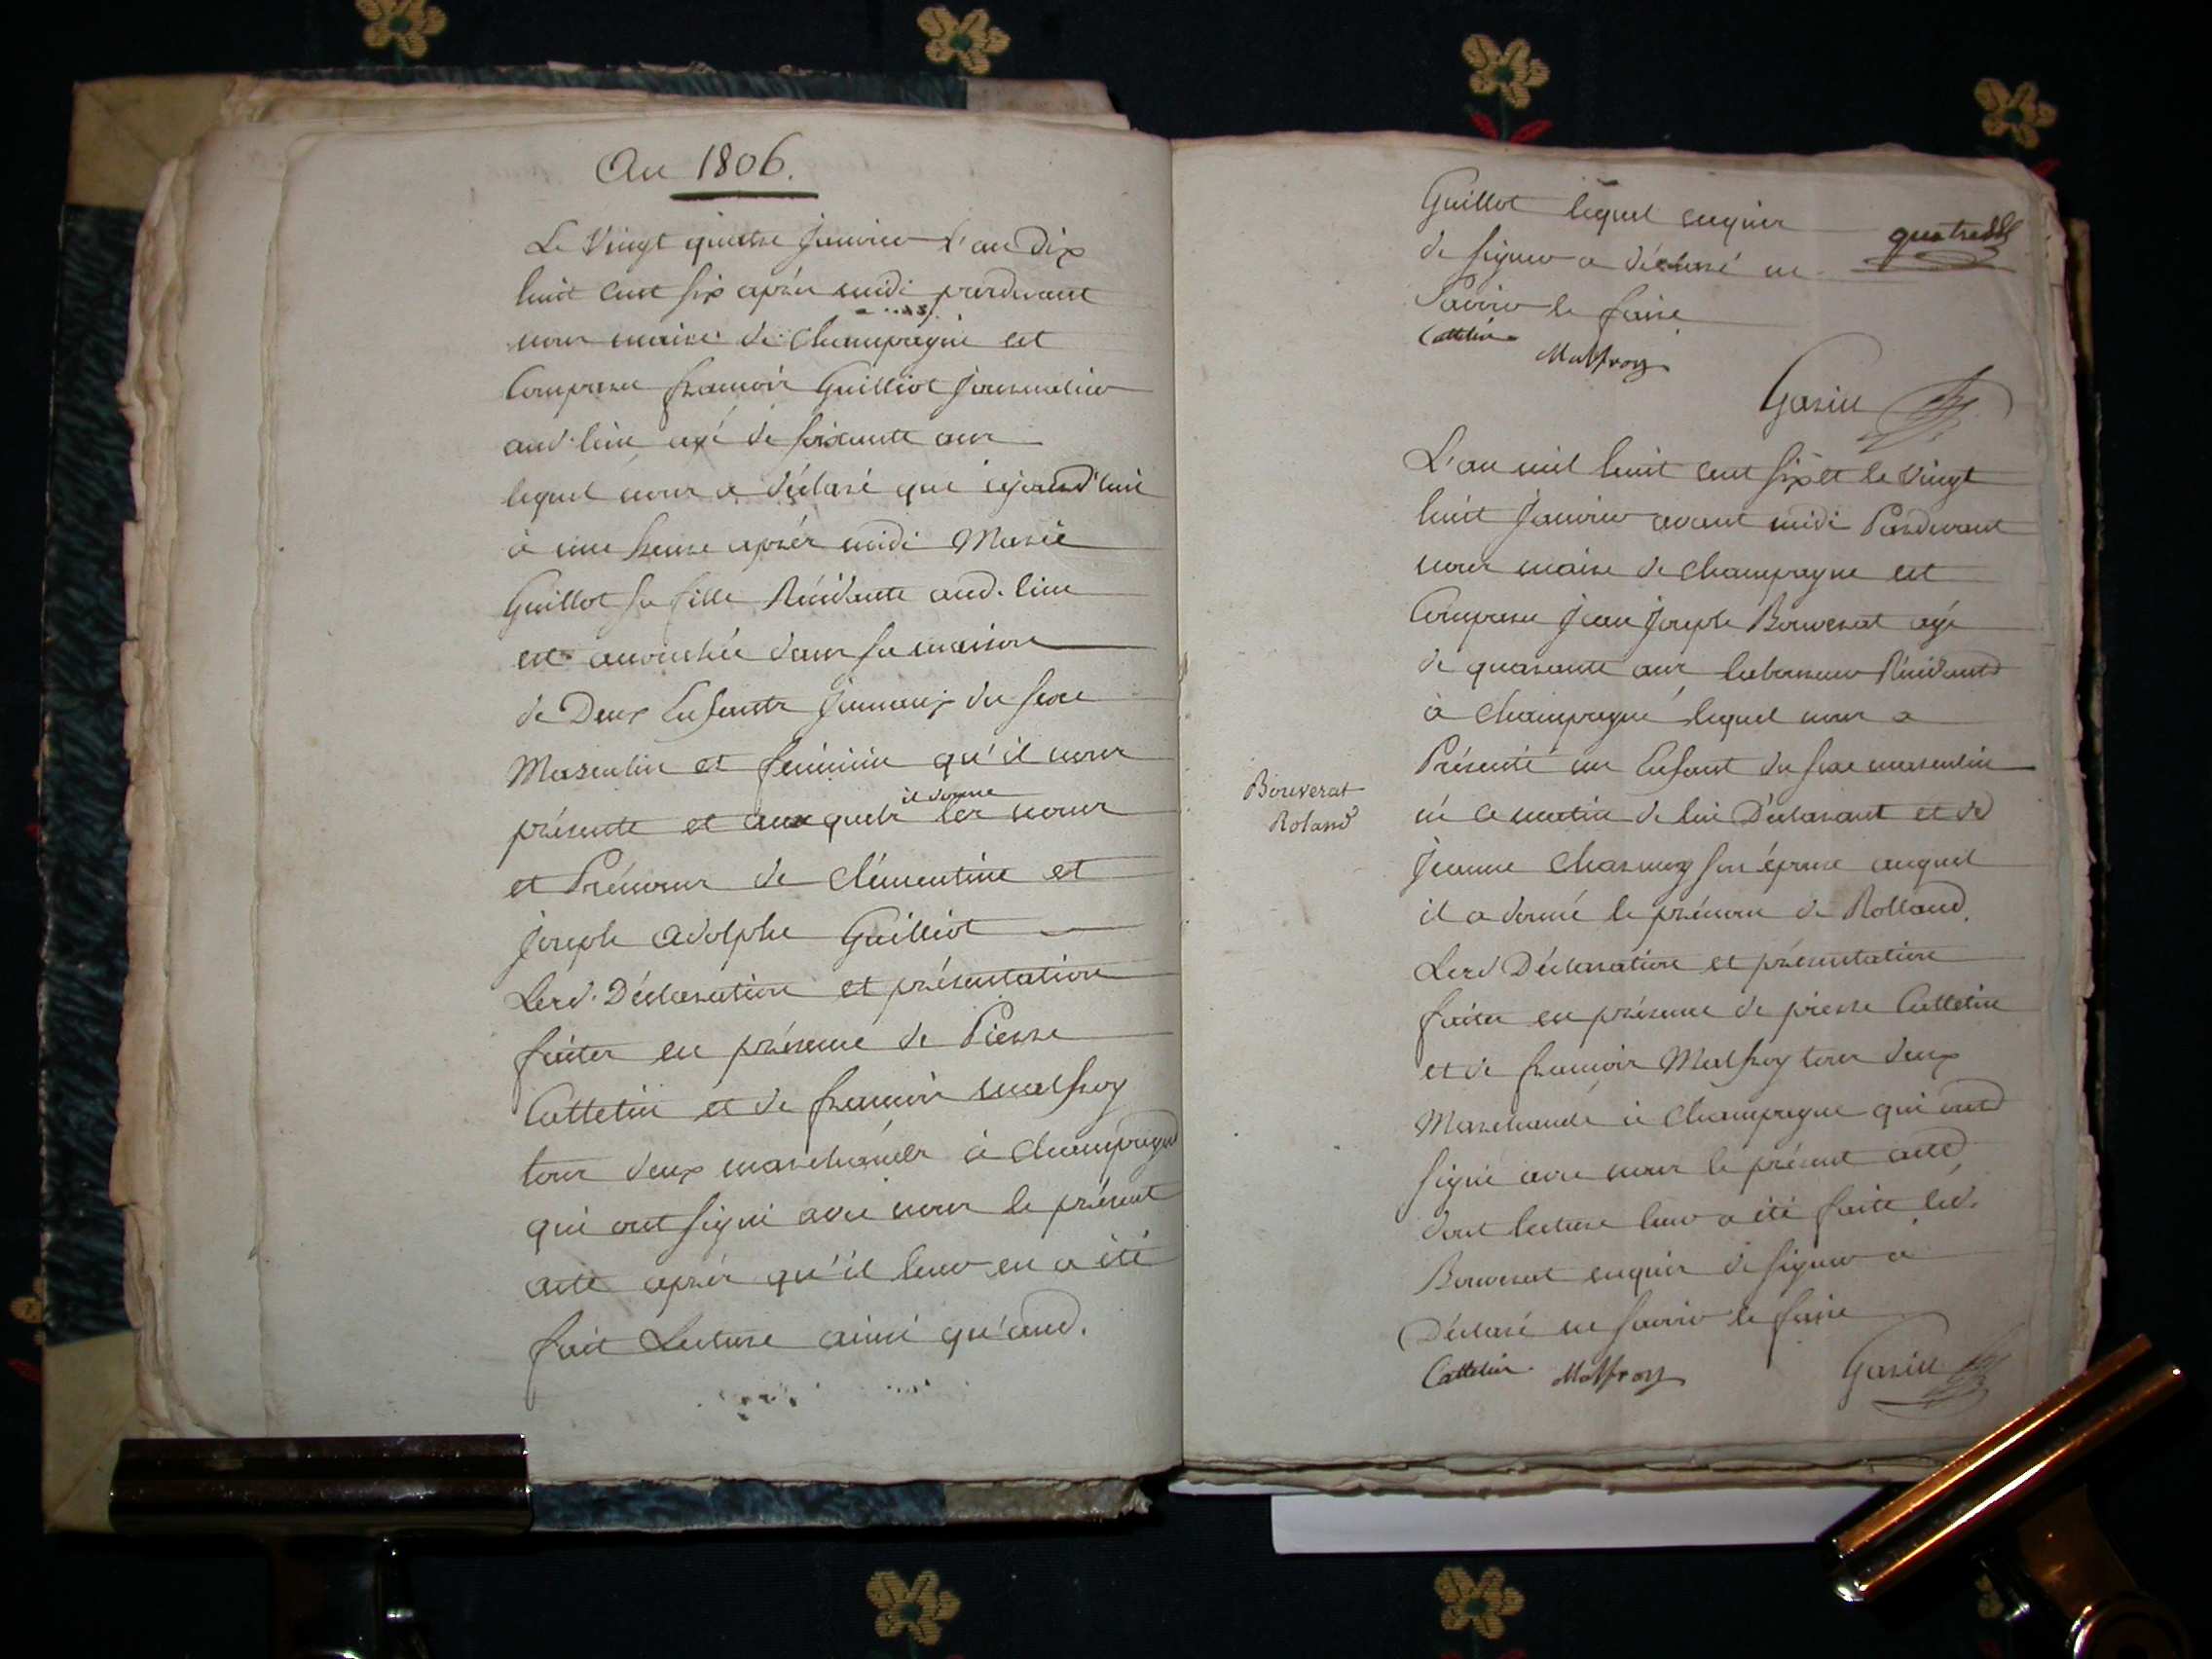 An 1806.
Le Vingt quatre Janvier l'an Dix
huit cent six après midi pardevant
nous maire de Champagne est
Comparu françois Guilliot Journalier
aud. lieu agé de soixante ans
lequel nous a déclaré que cejourd'hui
à une heure après midi Marie
Guillot sa fille Résidante aud. lieu
est accouchée dans sa maison
de Deux Enfants Jumeaux du sexe
Masculin et féminin qu'il nous
il donne
présente et auxquels les noms
et Prénoms de Clémentine et
Joseph Adolphe Guilliot
Lesd. Déclaration et présentation
faites en présence de Pierre
Cattelin et de françois malfroy
tous deux marchands à Champagne
qui ont signé avec nous le présent
acte après qu'il leur en a été
fait Lecture ainsi qu'aud.
Guillot lequel enquis
de signer a déclaré ne
Savoir le faire
Cattelin Malfroy
L'an mil huit cent six et le vingt
huit Janvier avant midi Pardevant
nous maire de Champagne est
Comparu Jean Joseph Bouverat agé
de quarante ans laboureur Résidant
à Champagne lequel nous a
Présenté un Enfant du sexe masculin
né ce matin de lui Déclarant et de
Jeanne son épouse auquel
il a donné le prénom de Rolland.
Bouverat
Roland
Lesd Déclaration et présentation
faites en présence de pierre Cattelin
et de françois Malfroy tous deux
Marchands à Champagne qui ont
signé avec nous le présent acte
dont lecture leur a été faite led.
Bouverat enquis de signer a
Déclaré ne savoir le faire
Cattelin Malfroy